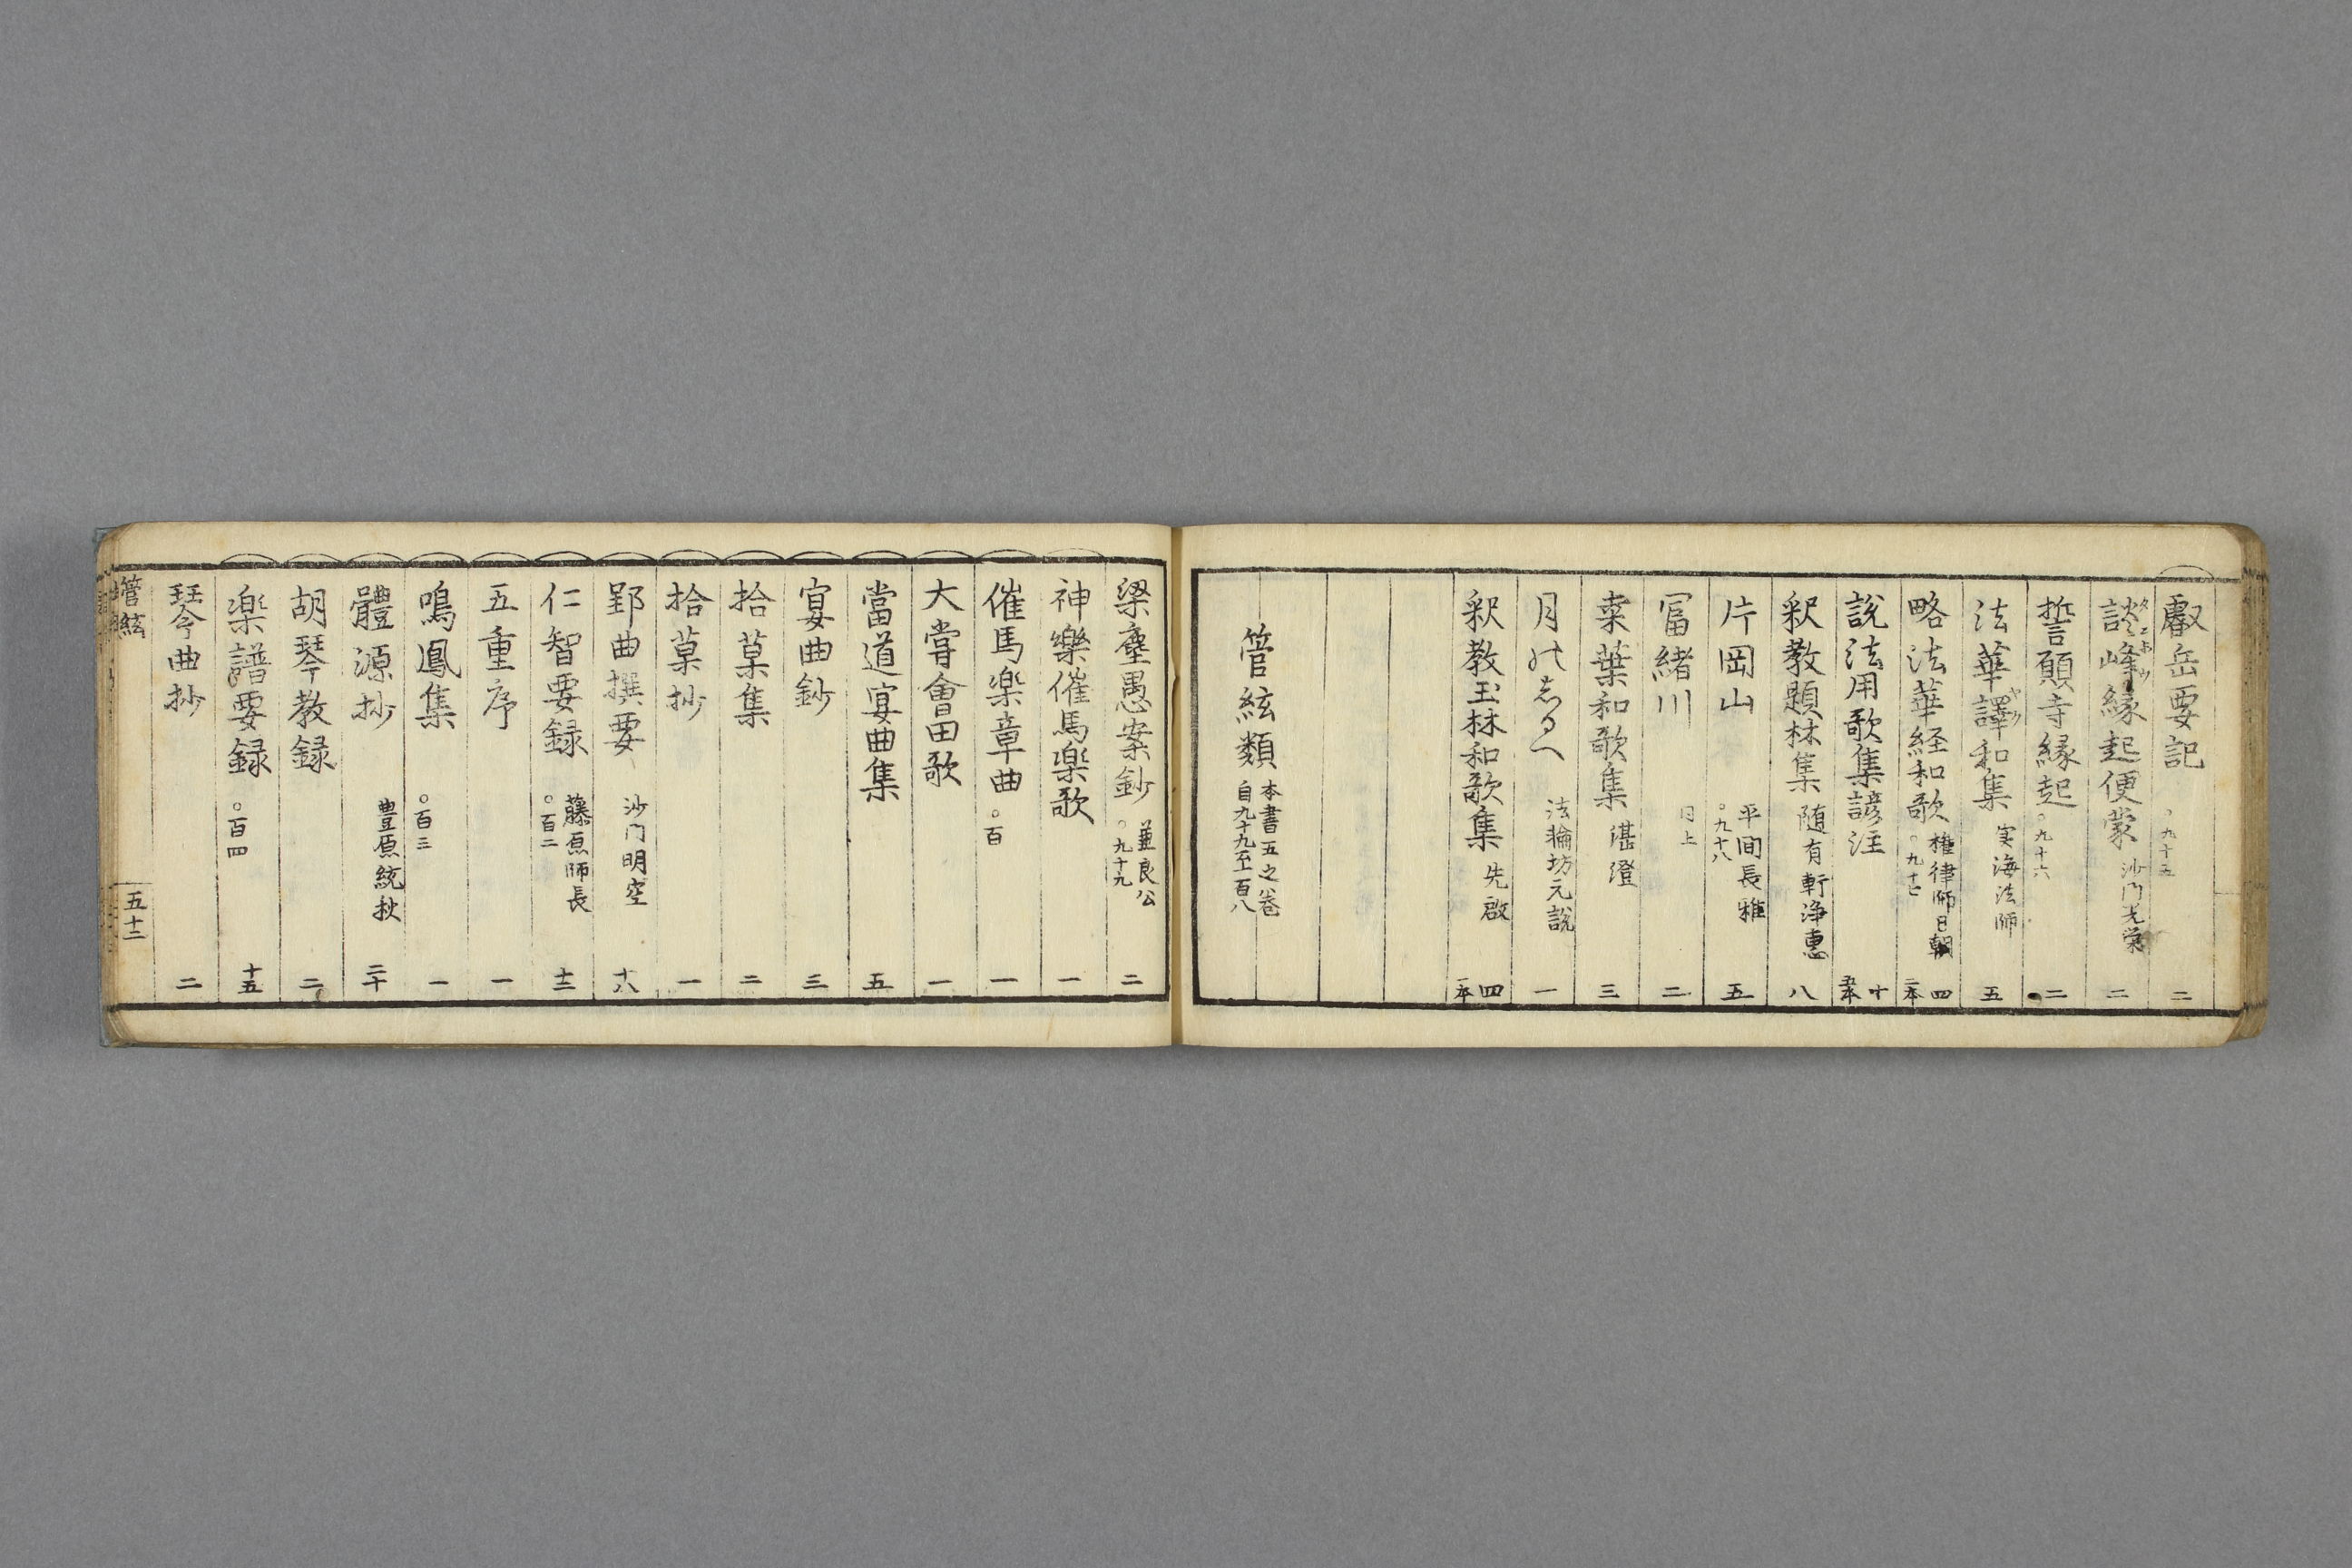 叡岳要記 ○九十五 二
談峰縁起便蒙 タニホウ 沙門光榮 二
誓願寺縁起 ○九十六 二
法華譯和集 ヤク 実海法師 五
略法華経和歌 権律師日朝 ○九十七 四 二本
説法用歌集諺註 十 五本
釈教題林集 随有軒浄恵 八
片岡山 平間長雅 ○九十八 五
冨緒川 同上 二
栗葉和歌集 湛澄 三
月のしるへ 法輪坊元説 一
釈教玉林和歌集 先啟 四 二本
管絃類 本書五之巻 自九十九至百八
梁塵愚案鈔 兼良公 ○九十九 二
神樂催馬楽歌 一
催馬楽章曲 ○百 一
大嘗會田歌 一
當道宴曲集 五
宴曲鈔 三
拾菓集 二
拾菓抄 一
郢曲撰要 沙門明空 十八
仁智要録 藤原師長 ○百二 十二
五重序 一
鳴鳳集 ○百三 一
體源抄 豊原統秋 二十
胡琴教録 二
楽譜要録 ○百四 十五
琴曲抄 二
管絃 五十二